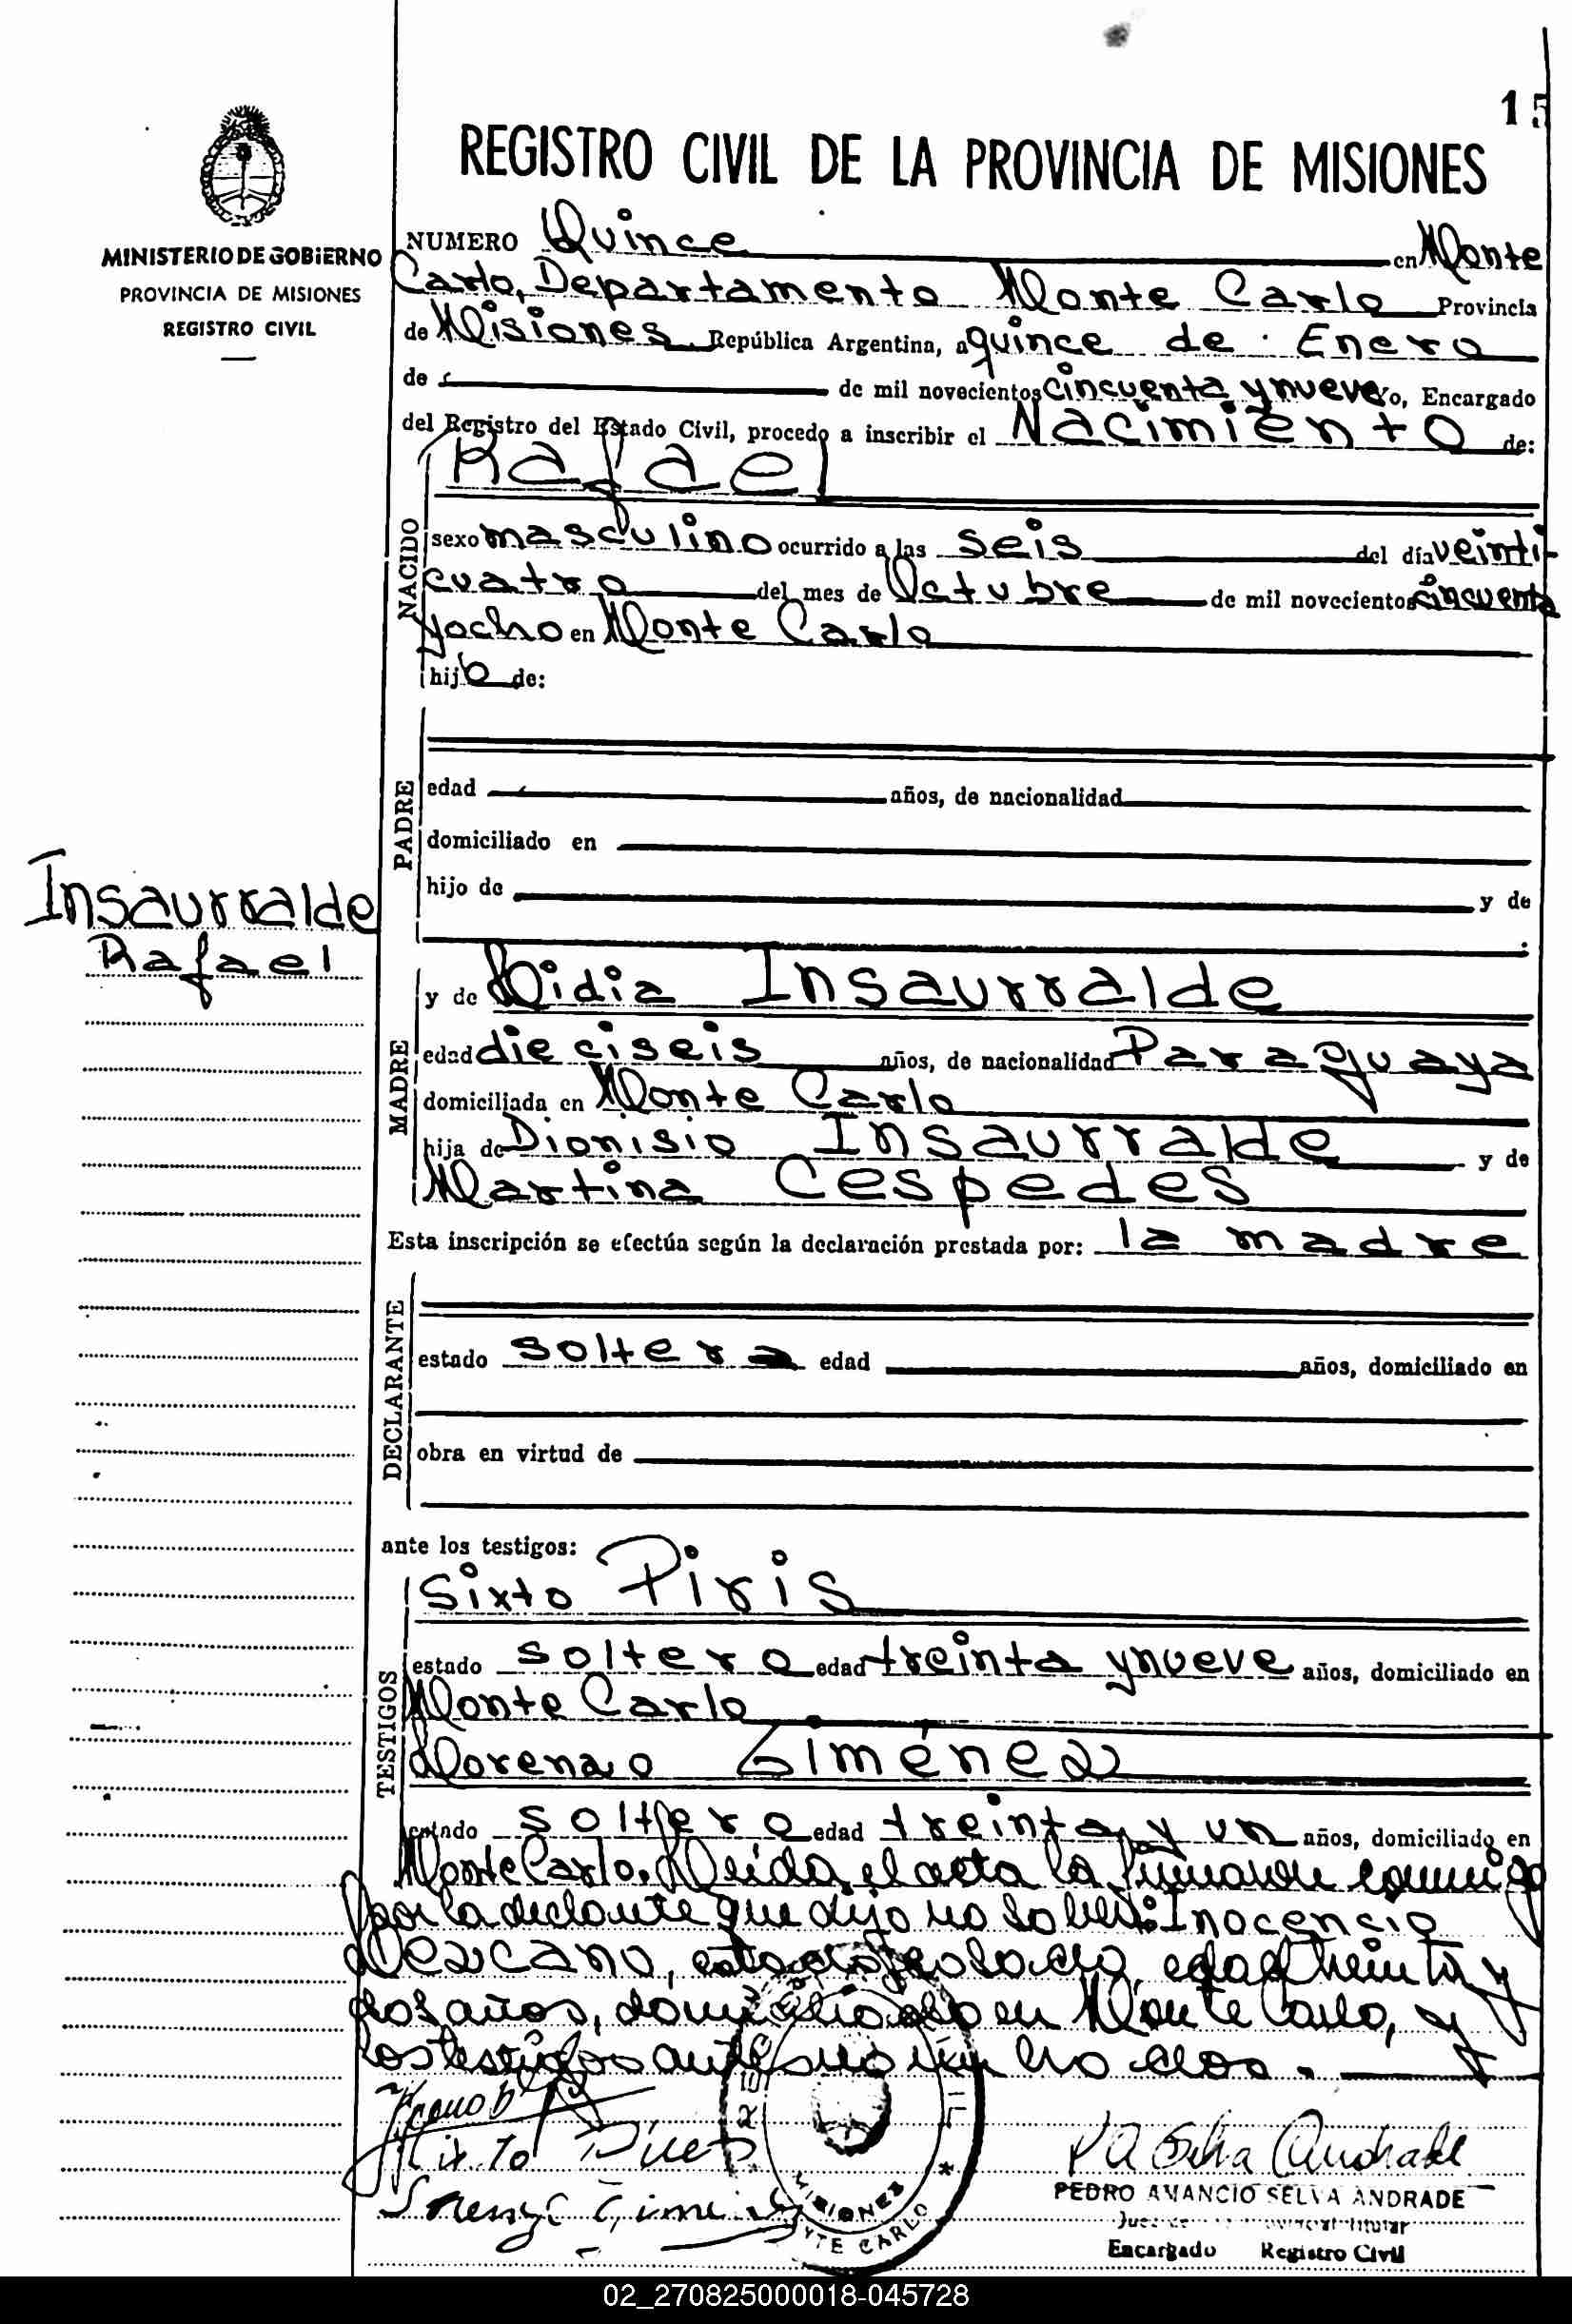 15
REGISTRO CIVIL DE LA PROVINCIA DE MISIONES
MINISTERIO DE GOBIERNO
PROVINCIA DE MISIONES
REGISTRO CIVIL
NUMERO Quince en Monte
Carlo, Departamento Monte Carlo Provincia
de Misiones República Argentina, a quince de Enero
de de mil novecientos cincuenta y nueve Yo, Encargado
del Registro del Estado Civil, procedo a inscribir el Nacimiento de:
NACIDO
Rafael
sexo masculino ocurrido a las seis del día veinti-
cuatro del mes de Octubre de mil novecientos cincuenta
y ocho en Monte Carlo
hijo de:
PADRE
edad años, de nacionalidad
domiciliado en
hijo de y de
Insaurralde
Rafael
MADRE
y de Lidia Insaurralde
edad dieciseis años, de nacionalidad Paraguaya
domiciliada en Monte Carlo
hija de Dionisio Insaurralde y de
Martina Cespedes
Esta inscripción se efectúa según la declaración prestada por: la madre
DECLARANTE
estado soltera edad años, domiciliado en
obra en virtud de
ante los testigos:
TESTIGOS
Sixto Piris
estado soltero edad treinta y nueve años, domiciliado en
Monte Carlo
Lorenzo Giménez
estado soltero edad treinta y un años, domiciliado en
Monte Carlo. Leida el acta la firmaron conmigo
por la declarante que dijo no saber: Inocencio
Lezcano, estado casado, edad treinta y
dos años, domiciliado en Monte Carlo, y
los testigos antes mencionados.
Sixto Piris
Lorenzo Gimenez
P A Selva Andrade
PEDRO AMANCIO SELVA ANDRADE
Encargado Registro Civil
MISIONES
MTE CARLO
02_270825000018-045728